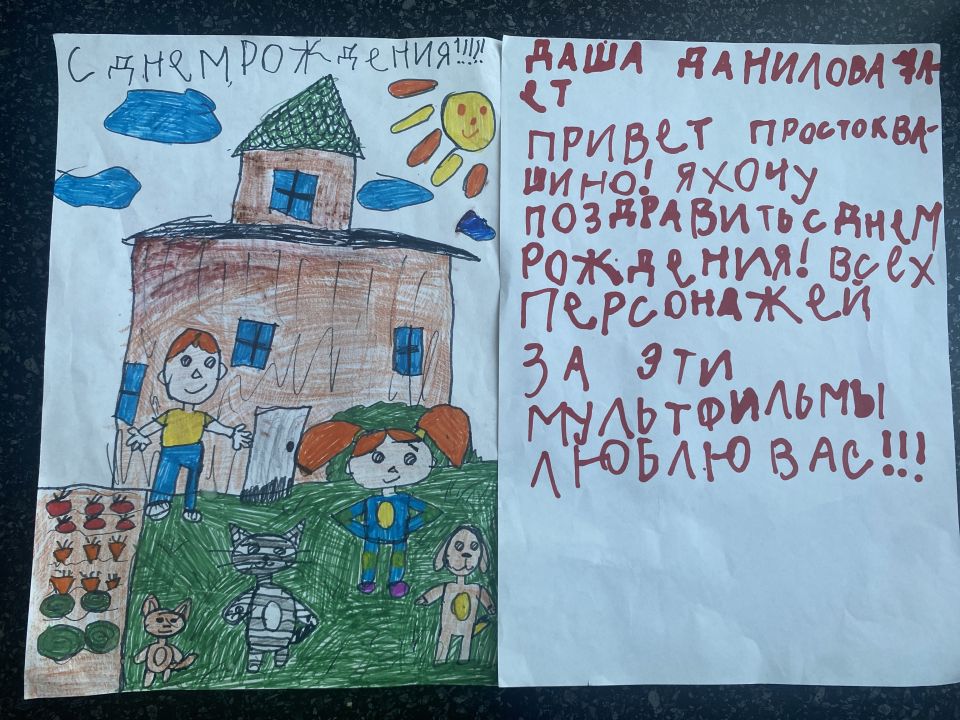 С ДНЕМ РОЖДЕНИЯ!!!!!
ДАША ДАНИЛОВА 7 Л-
ЕТ
ПРИВЕТ ПРОСТОКВА-
ШИНО! Я ХОЧУ
ПОЗДРАВИТЬ С ДНЕМ
РОЖДЕНИЯ! ВСЕХ
ПЕРСОНАЖЕЙ
ЗА ЭТИ
МУЛЬТФИЛЬМЫ
ЛЮБЛЮ ВАС!!!